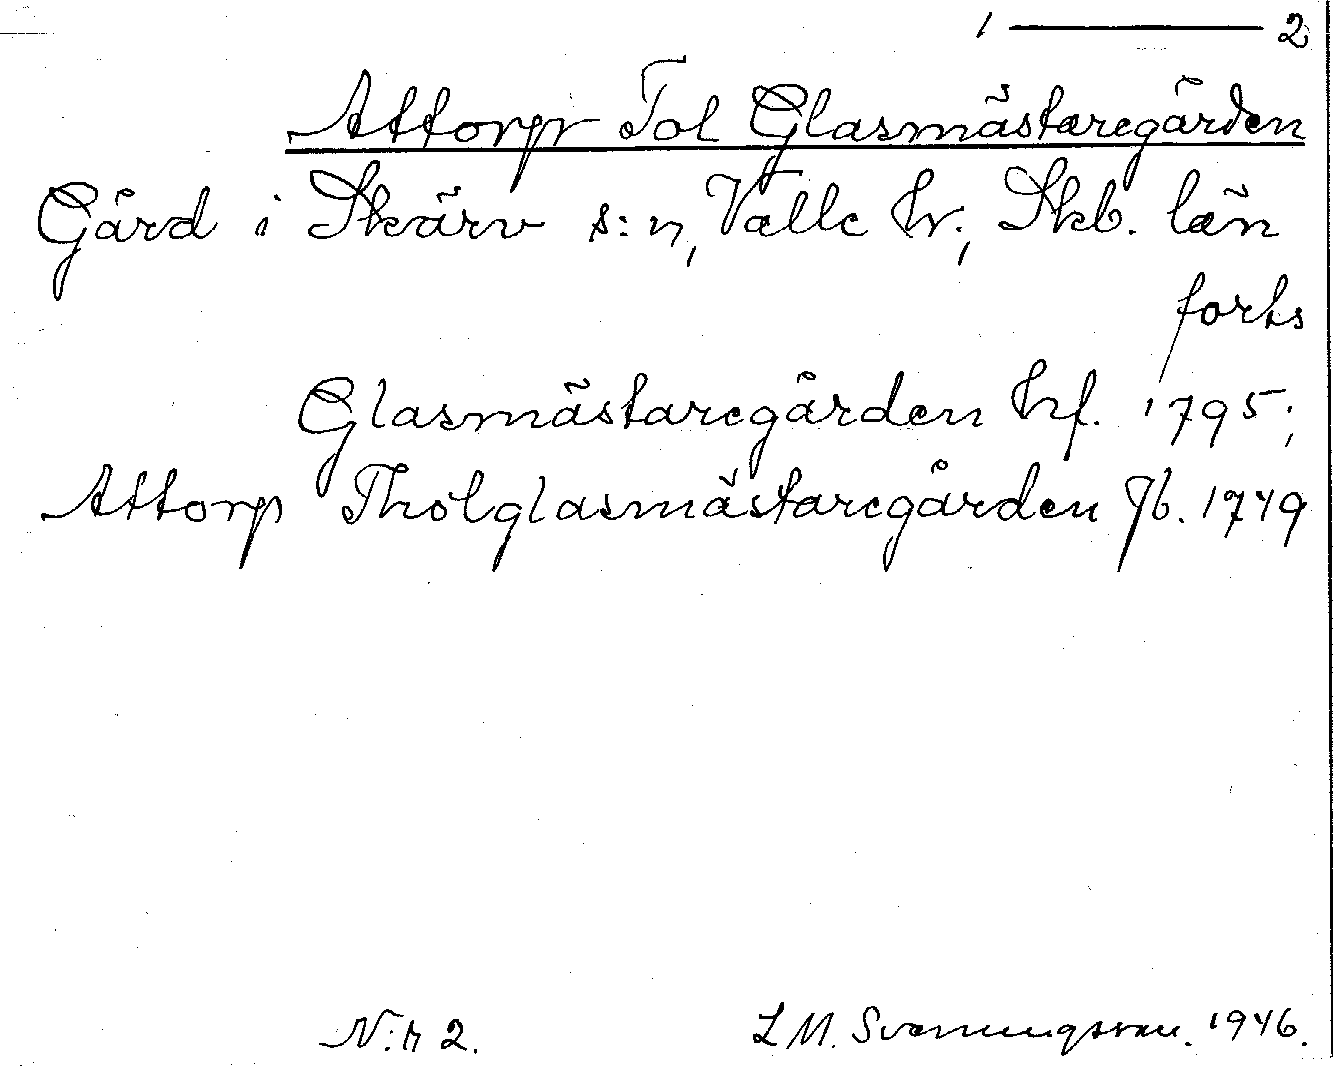 1 — 2
Attorp Tol Glasmästaregården
Gård i Skärv s:n, Valle hr, Skb. län
forts
Glasmästaregården hf. 1795;
Attorp Tholglasmästaregården Jb. 1749
N:r 2. L M. Svenungsson. 1946.